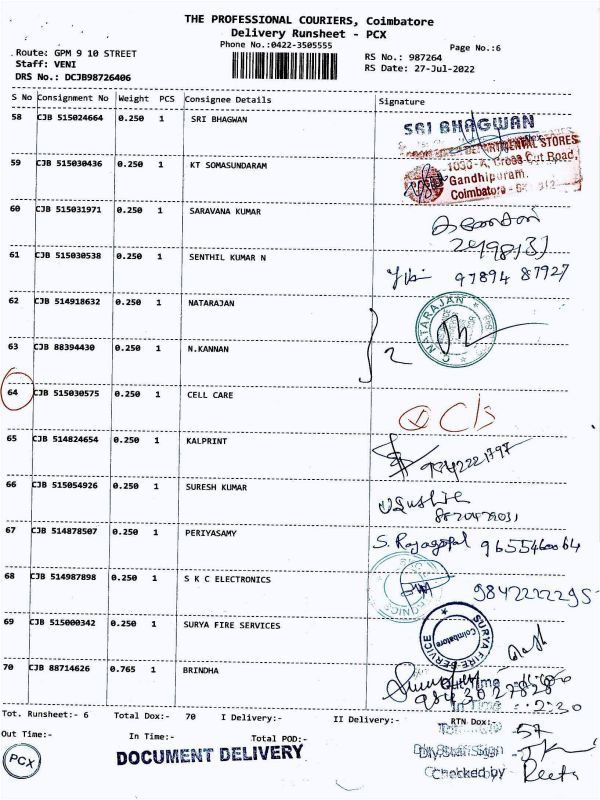 THE PROFESSIONAL COURIERS, Coimbatore
Delivery Runsheet - PCX
Phone No.:0422-3505555
Page No.:6
Route: GPM 9 10 STREET
Staff: VENI
DRS No.: DCJB98726406
RS No.: 987264
RS Date: 27-Jul-2022
S No Consignment No Weight PCS Consignee Details Signature
58 CJB 515024664 0.250 1 SRI BHAGWAN SRI BHAGWAN
DEPARTMENTAL STORES
Cross Cut Road,
59 CJB 515030436 0.250 1 KT SOMASUNDARAM Gandhipuram,
Coimbatore -
60 CJB 515031971 0.250 1 SARAVANA KUMAR
61 CJB 515030538 0.250 1 SENTHIL KUMAR N 97894 87927
62 CJB 514918632 0.250 1 NATARAJAN NATARAJAN
63 CJB 88394430 0.250 1 N.KANNAN 2
64 CJB 515030575 0.250 1 CELL CARE C/s
65 CJB 514824654 0.250 1 KALPRINT 9842221797
66 CJB 515054926 0.250 1 SURESH KUMAR
67 CJB 514878507 0.250 1 PERIYASAMY S. Rajagopal
68 CJB 514987898 0.250 1 S K C ELECTRONICS
69 CJB 515000342 0.250 1 SURYA FIRE SERVICES SURYA FIRE SERVICE Coimbatore
70 CJB 88714626 0.765 1 BRINDHA 9843027828
In Time 2:30
Tot. Runsheet:- 6 Total Dox:- 70 I Delivery:- II Delivery:- RTN Dox:-
57
Out Time :- In Time :- Total POD:-
PCX DOCUMENT DELIVERY
Checked by Reeta